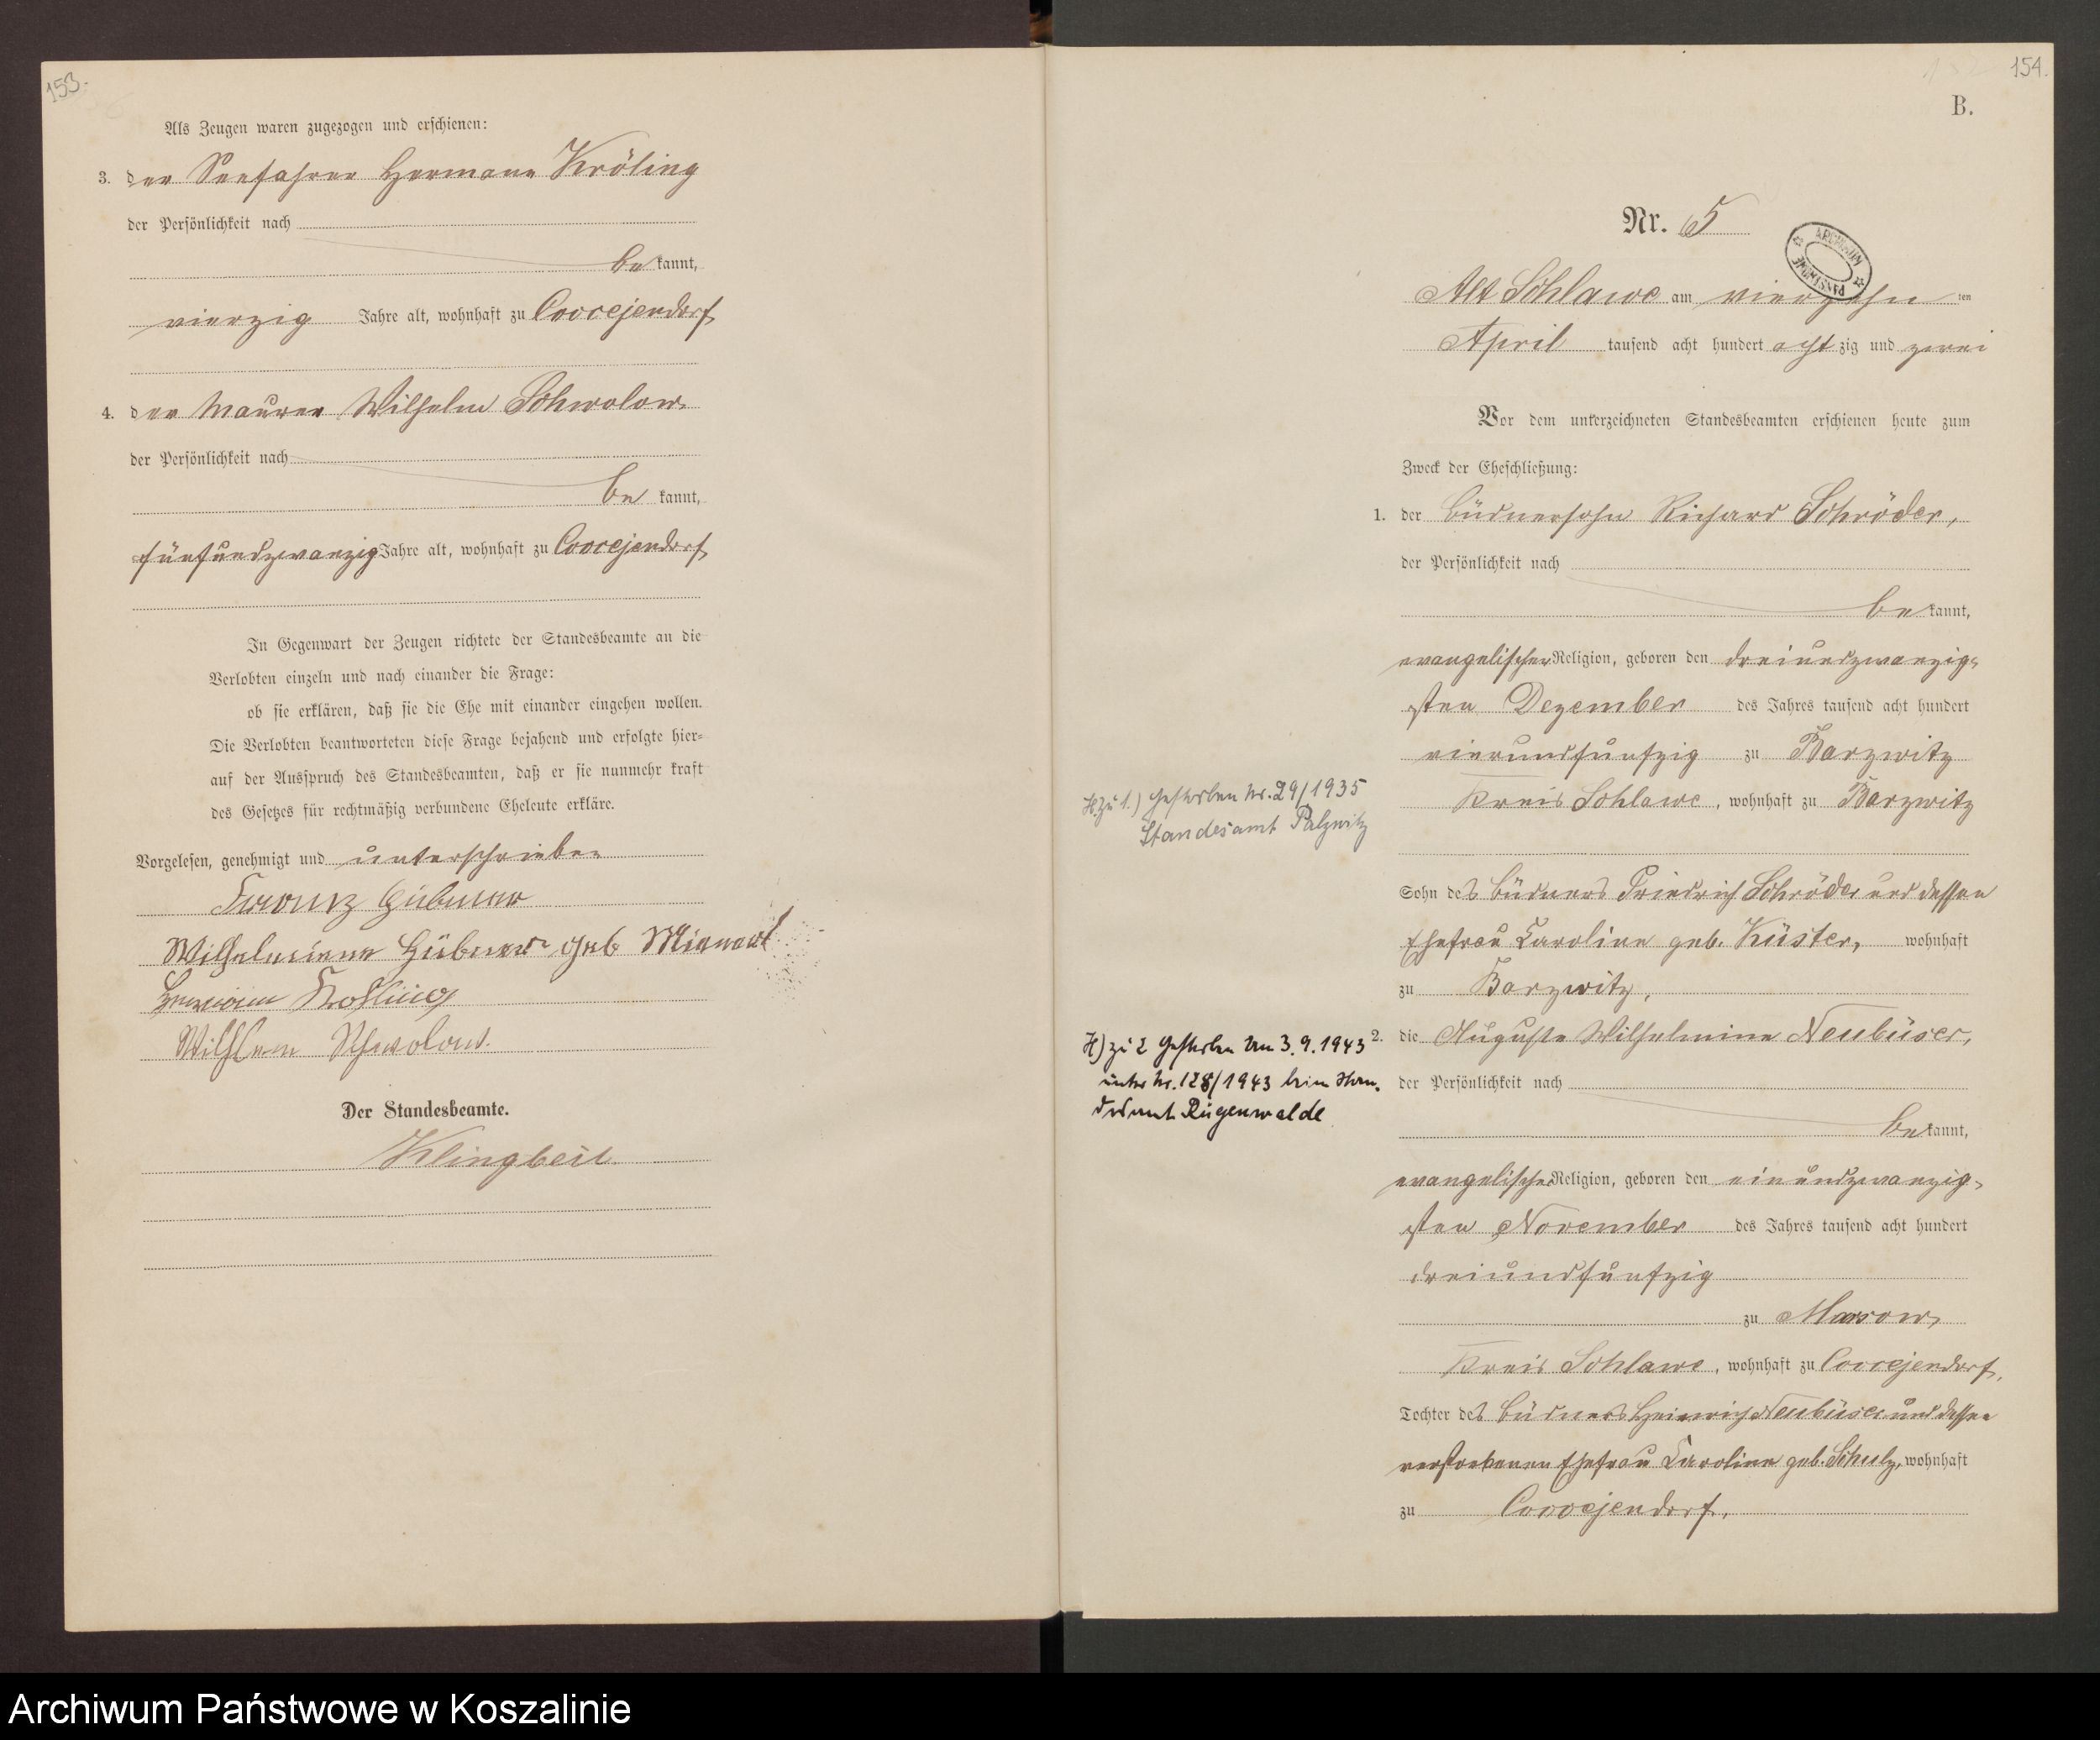 153.
Als Zeugen waren zugezogen und erschienen:
3. der Seefahrer Hermann Kröling
der Persönlichkeit nach
be kannt,
vierzig Jahre alt, wohnhaft zu Coccejendorf
4. der Maurer Wilhelm Schwolow
der Persönlichkeit nach
be kannt,
fünfundzwanzig Jahre alt, wohnhaft zu Coccejendorf
In Gegenwart der Zeugen richtete der Standesbeamte an die
Verlobten einzeln und nach einander die Frage:
ob sie erklären, daß sie die Ehe mit einander eingehen wollen.
Die Verlobten beantworteten diese Frage bejahend und erfolgte hier-
auf der Ausspruch des Standesbeamten, daß er sie nunmehr kraft
des Gesetzes für rechtmäßig verbundene Eheleute erkläre.
Vorgelesen, genehmigt und unterschrieben
Franz Hübner
Wilhelmine Hübner geb
Hermann Kröhling
Wilhlem Schwolow.
Der Standesbeamte.
Klingbeil
154.
B.
Nr. 5
ARCHIWUM PAŃSTWOWE
Alt Schlawe am vierzehn ten
April tausend acht hundert acht zig und zwei
Vor dem unterzeichneten Standesbeamten erschienen heute zum
Zweck der Eheschließung:
1. der Büdnersohn Richard Schröder,
der Persönlichkeit nach
be kannt,
evangelischer Religion, geboren den dreiundzwanzig-
sten Dezember des Jahres tausend acht hundert
vierundfünfzig zu Barzwitz
Kreis Schlawe, wohnhaft zu Barzwitz
H. zu 1.) Gestorben Nr. 29/1935
Standesamt Palzwitz
Sohn des Büdners Friedrich Schröder und dessen
Ehefrau Caroline geb. Küster, wohnhaft
zu Barzwitz,
2. die Auguste Wilhelmine Neubüser,
H) zu 2 Gestorben am 3.9.1943
unter Nr. 128/1943 beim Stan-
desamt Rügenwalde
der Persönlichkeit nach
be kannt,
evangelischer Religion, geboren den einundzwanzig-
sten November des Jahres tausend acht hundert
dreiundfünfzig
zu Marsow,
Kreis Schlawe, wohnhaft zu Coccejendorf,
Tochter des Büdners Heinrich Neubüser und dessen
verstorbenen Ehefrau Caroline geb. Schulz, wohnhaft
zu Coccejendorf,
Archiwum Państwowe w Koszalinie